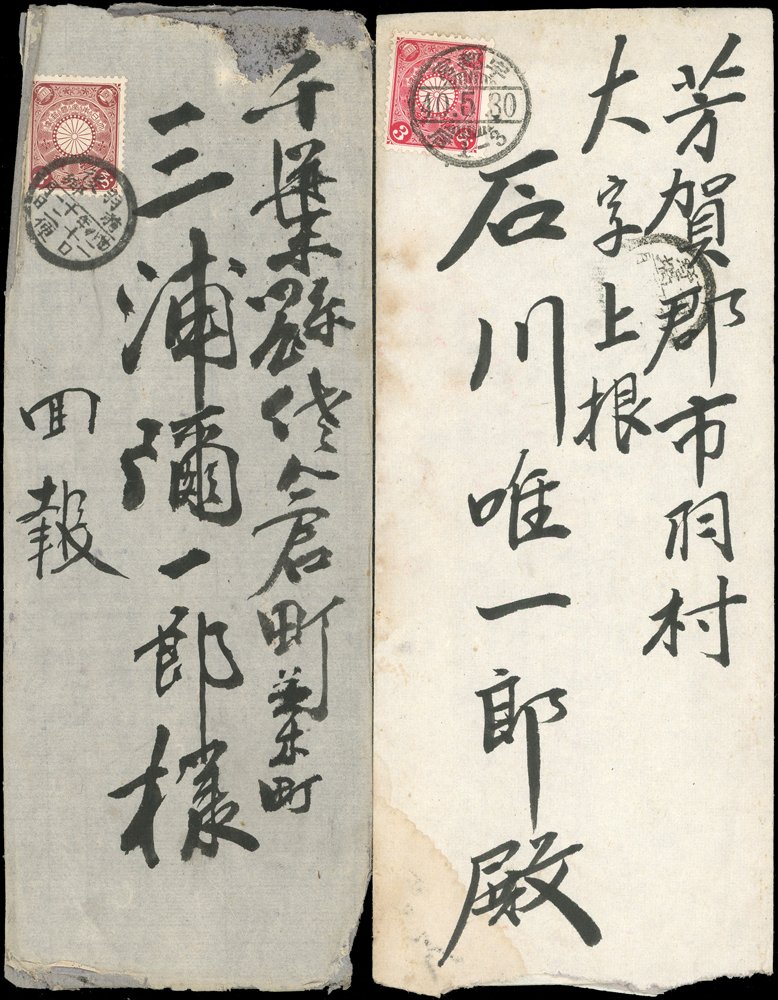 千葉縣佐倉町並木町
三浦彌一郎様
回報
芳賀郡市羽村
大字上根
石川唯一郎殿
40.5.30
3